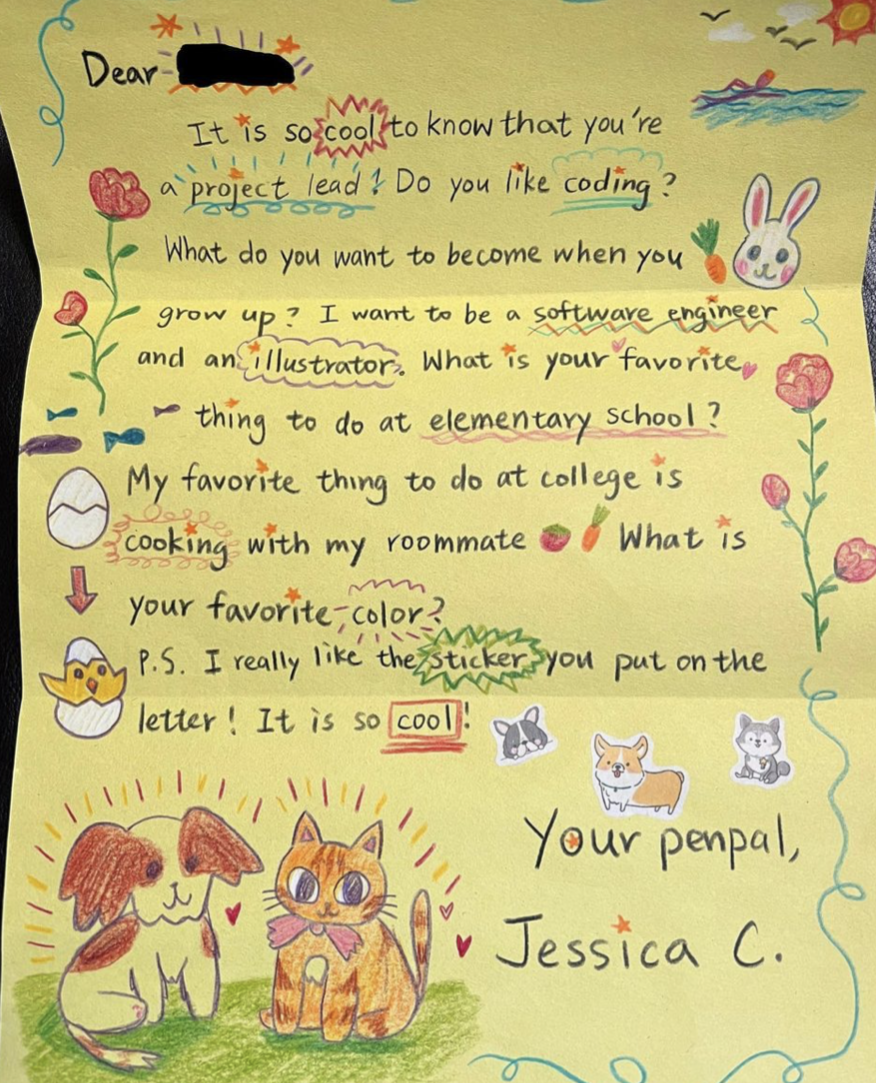 Dear
It is so cool to know that you're
a project lead! Do you like coding?
What do you want to become when you
grow up? I want to be a software engineer
and an illustrator. What is your favorite
thing to do at elementary school?
My favorite thing to do at college is
cooking with my roommate What is
your favorite color?
P.S. I really like the sticker you put on the
letter! It is so cool!
Your penpal,
Jessica C.